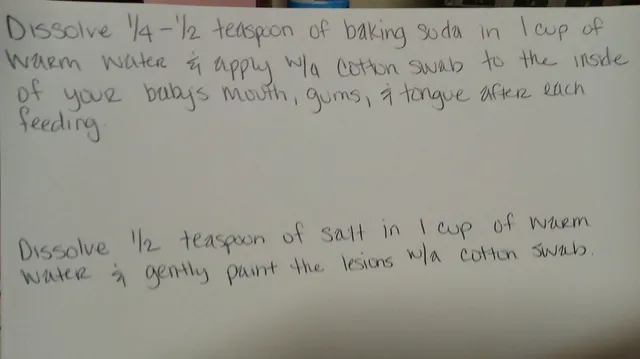 Dissolve 1/4 - 1/2 teaspoon of baking soda in 1 cup of
warm water & apply w/a cotton swab to the inside
of your baby's mouth, gums, & tongue after each
feeding.
Dissolve 1/2 teaspoon of salt in 1 cup of warm
water & gently paint the lesions w/a cotton swab.